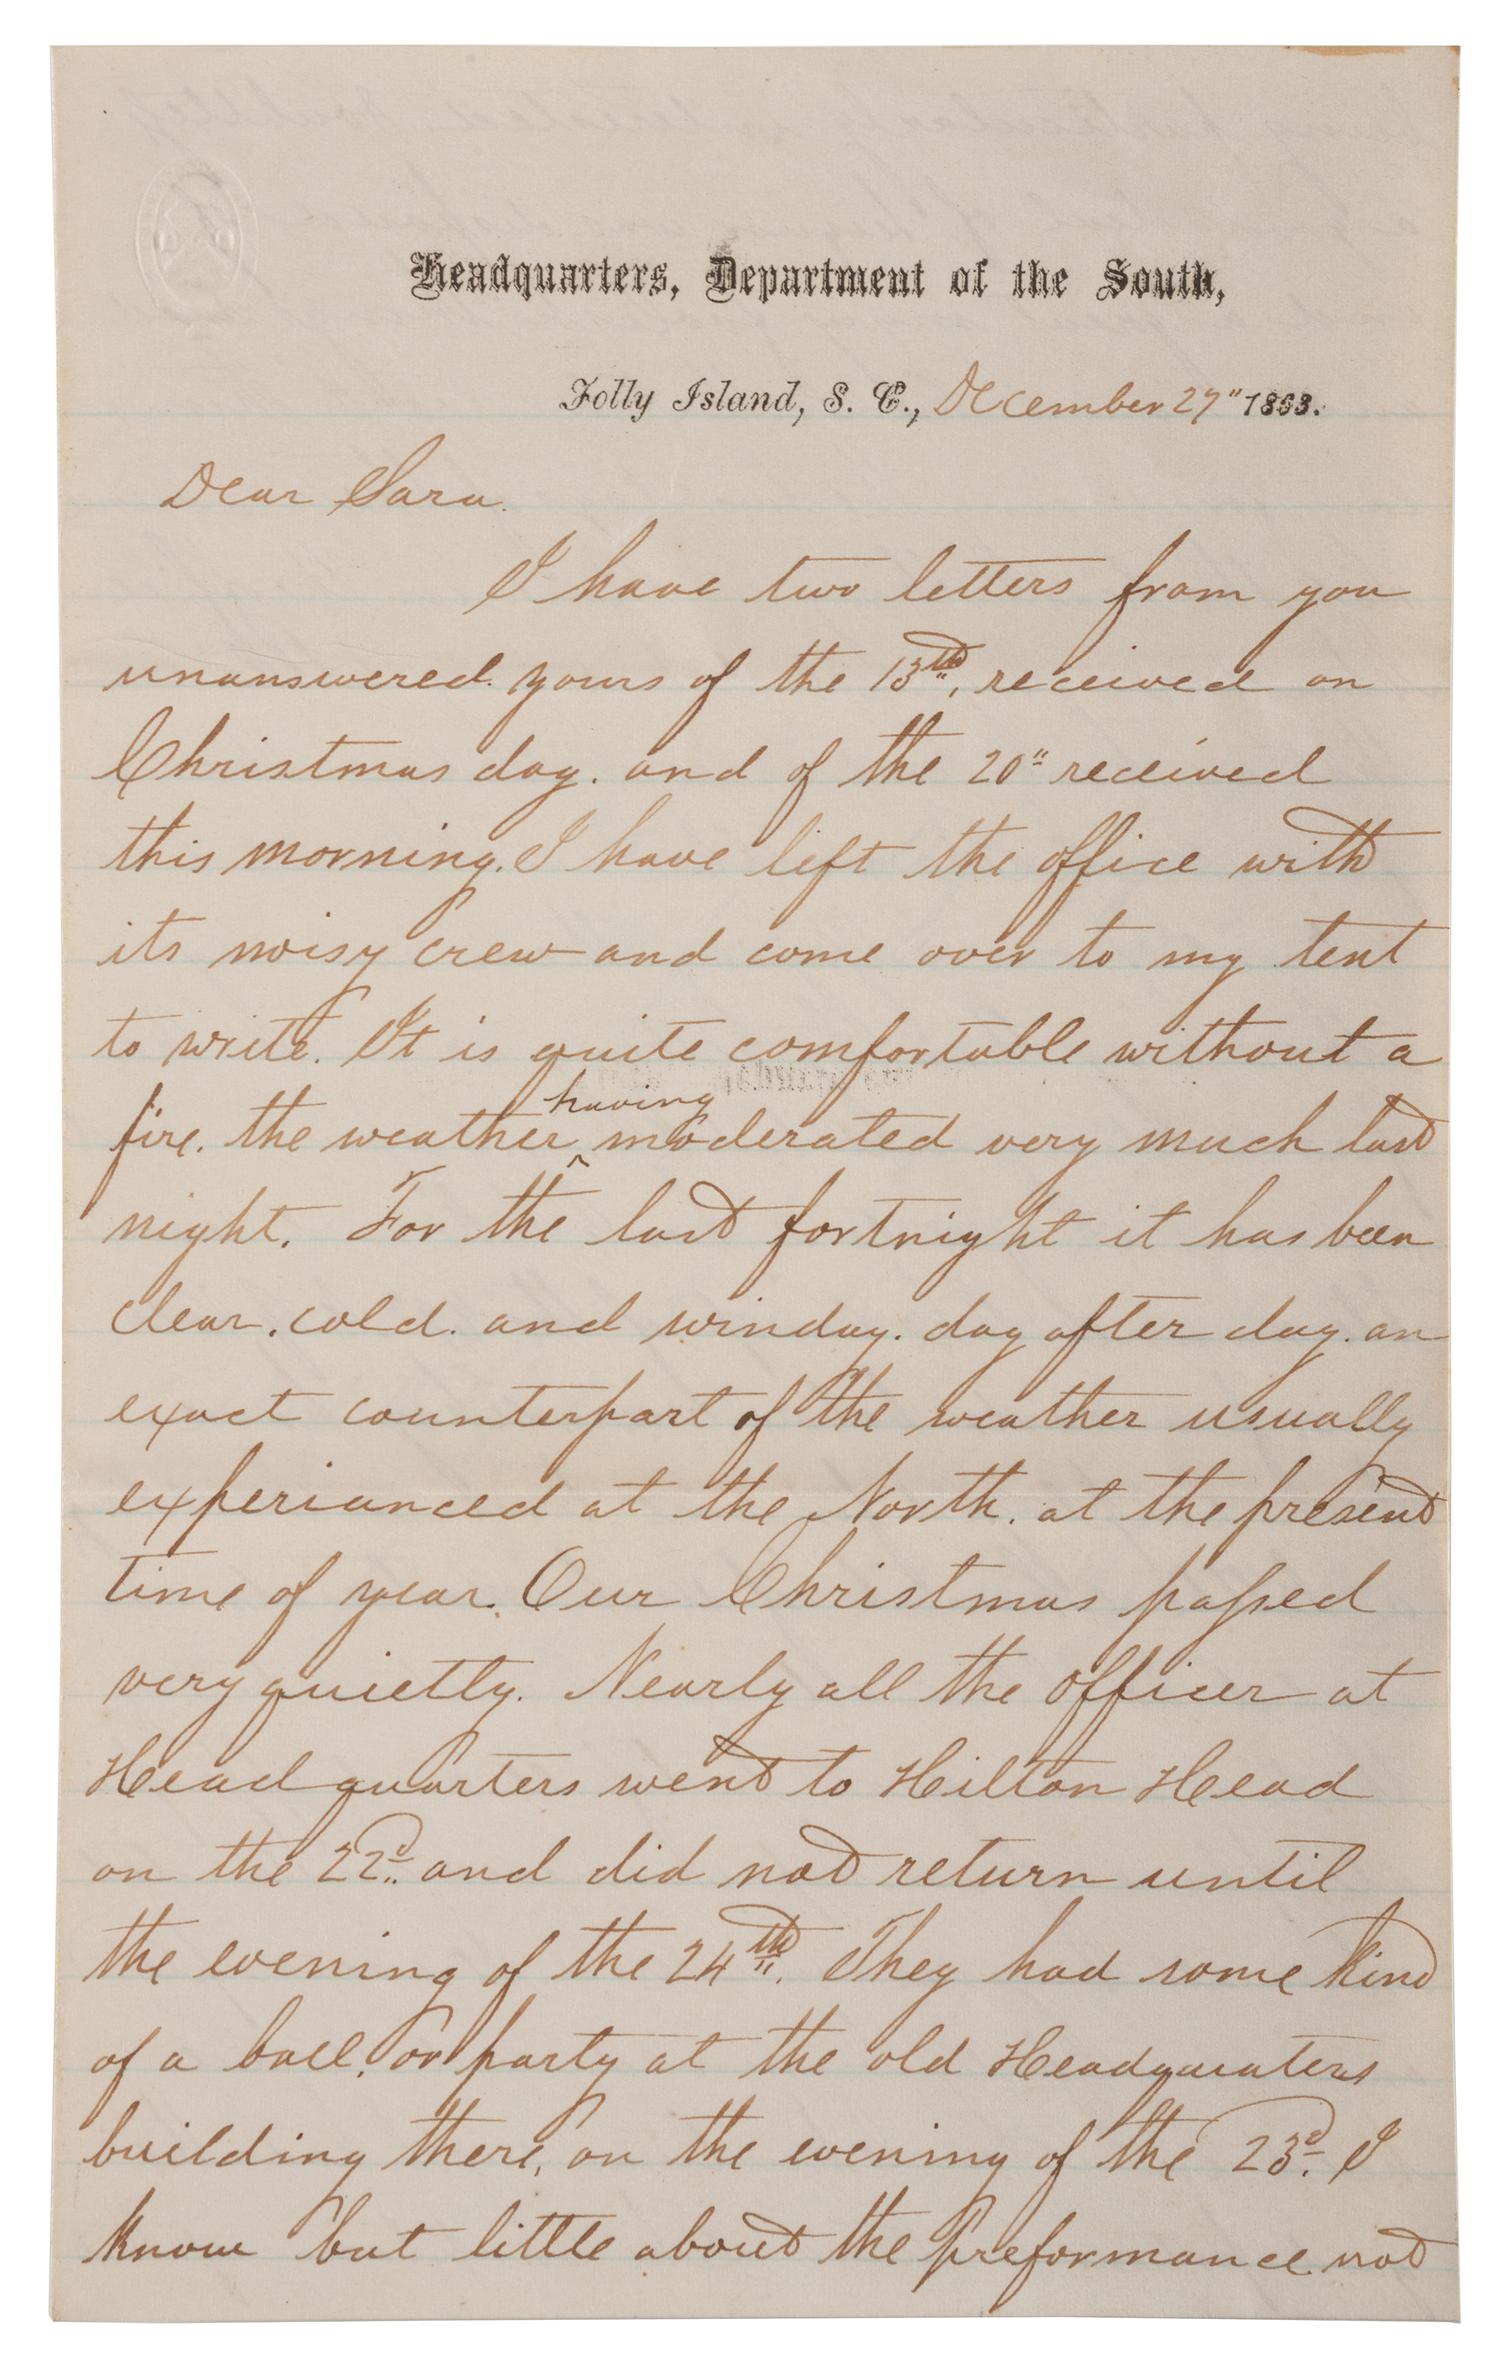 Headquarters, Department of the South,
Folly Island, S. C., December 27" 1863.
Dear Sara.
I have two letters from you
unanswered. yours of the 13th, received on
Christmas day. and of the 20" received
this morning. I have left the office with
its noisy crew and come over to my tent
to write. It is quite comfortable without a
having
fire. the weather ^ moderated very much last
night. For the last fortnight it has been
clear. cold. and winday. day after day. an
exact counterpart of the weather usually
experianced at the North. at the present
time of year. Our Christmas passed
very quietly. Nearly all the officer at
Head quarters went to Hilton Head
on the 22d and did not return until
the evening of the 24th. They had some kind
of a ball, or party at the old Headquaters
building there, on the evening of the 23d. I
know but little about the preformance. not